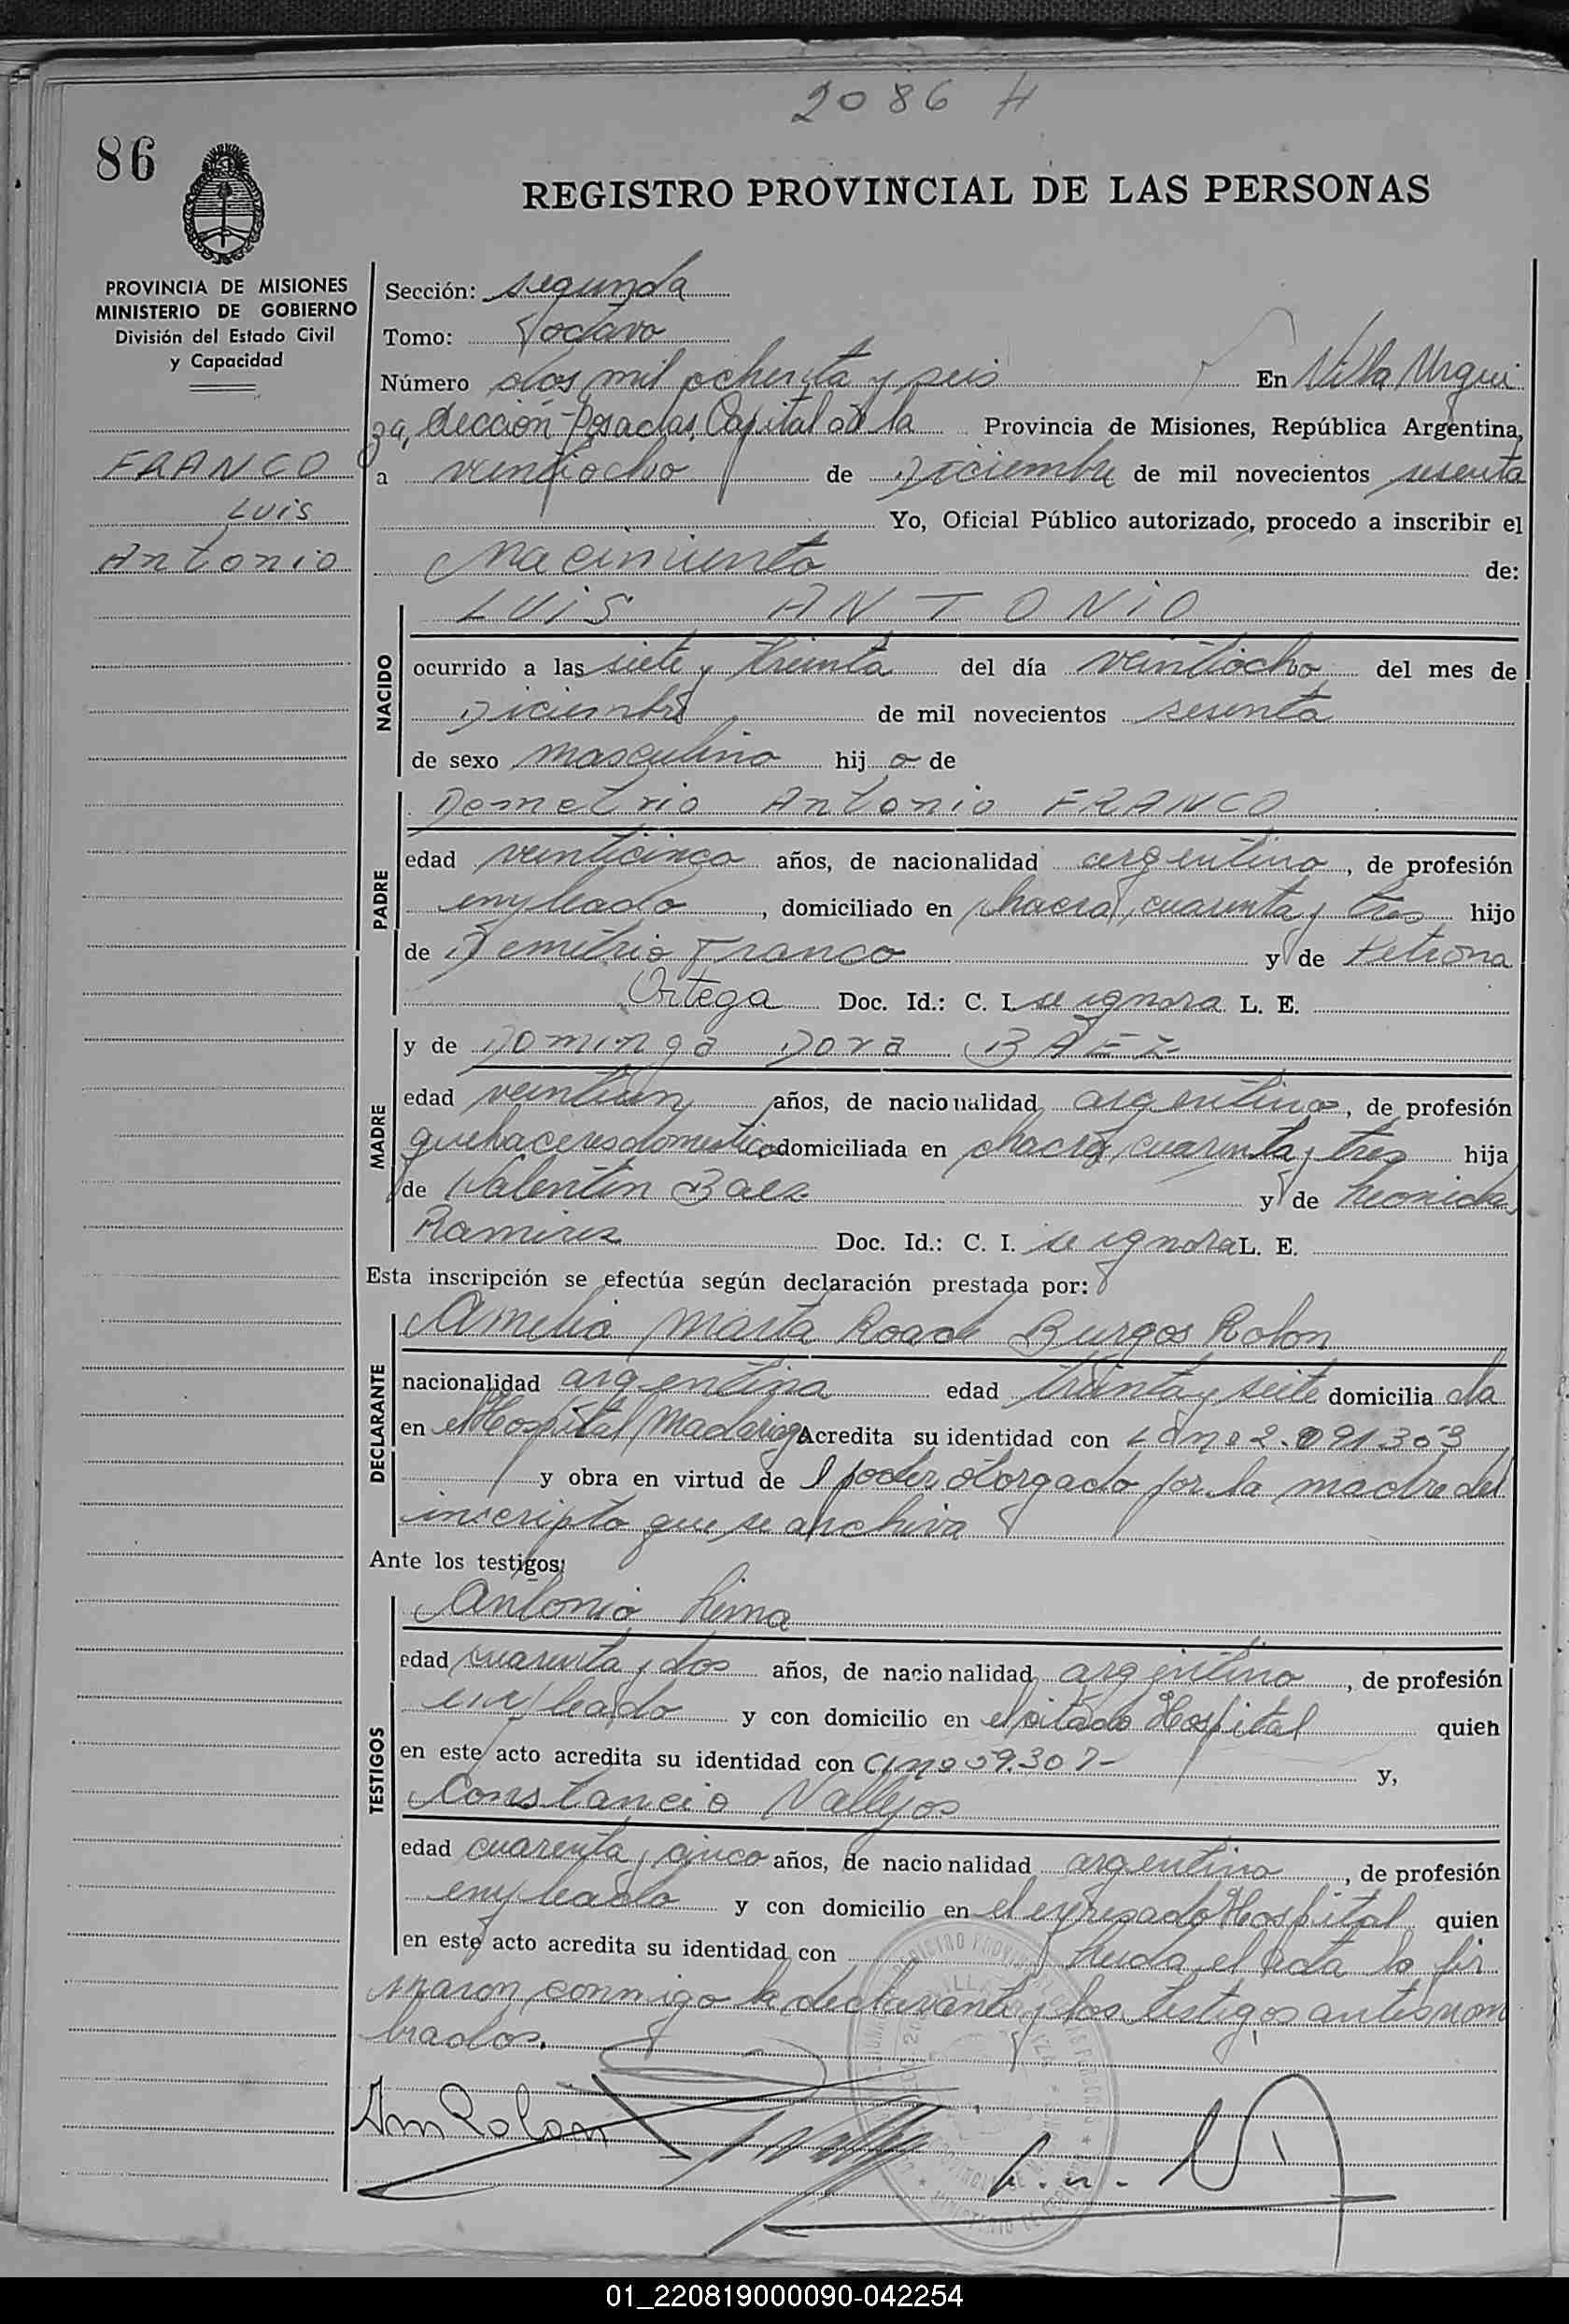 2086 H
86
REGISTRO PROVINCIAL DE LAS PERSONAS
PROVINCIA DE MISIONES
MINISTERIO DE GOBIERNO
División del Estado Civil
y Capacidad
FRANCO
Luis
Antonio
Sección: segunda
Tomo: octavo
Número dos mil ochenta y seis En Villa Urqui
za, Sección Posadas, Capital de la Provincia de Misiones, República Argentina,
a veintiocho de Diciembre de mil novecientos sesenta
Yo, Oficial Público autorizado, procedo a inscribir el
Nacimiento de:
NACIDO
LUIS ANTONIO
ocurrido a las siete y treinta del día veintiocho del mes de
Diciembre de mil novecientos sesenta
de sexo masculino hij o de
PADRE
Demetrio Antonio FRANCO
edad veinticinco años, de nacionalidad argentino, de profesión
empleado, domiciliado en chacra cuarenta y tres hijo
de Demetrio Franco y de Petrona
Ortega Doc. Id.: C. I. se ignora L. E.
MADRE
y de Dominga Dora BAEZ
edad veintiun años, de nacionalidad argentina, de profesión
quehaceres domestico domiciliada en chacra cuarenta y tres hija
de Valentin Baez y de Leonidas
Ramirez Doc. Id.: C. I. se ignora L. E.
Esta inscripción se efectúa según declaración prestada por:
DECLARANTE
Amelia Marta Burgos Rolon
nacionalidad argentina edad treinta y seite domicilia da
en el Hospital Madariaga Acredita su identidad con nº 2.091.303
y obra en virtud de l poder otorgado por la madre del
inscripto que se archiva
Ante los testigos:
TESTIGOS
Antonio Lima
edad cuarenta y dos años, de nacionalidad argentino, de profesión
empleado y con domicilio en el citado Hospital quien
en este acto acredita su identidad con CI nº 59.307- y,
Constancio Vallejos
edad cuarenta y cinco años, de nacionalidad argentino, de profesión
empleado y con domicilio en el expresado Hospital quien
en este acto acredita su identidad con leida el acta la fir
maron conmigo la declarante y los testigos antes nom
brados.
Am Rolon
01_220819000090-042254